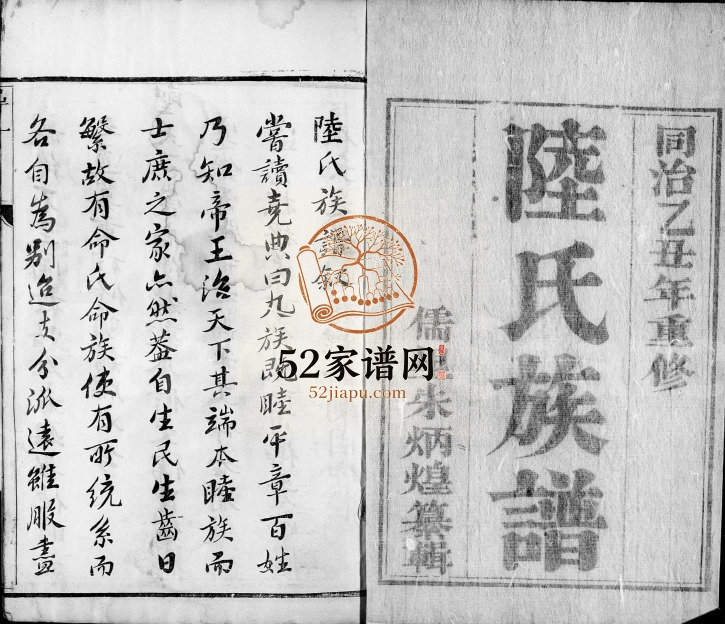 同治乙丑年重修
陸氏族譜
儒 朱炳煌纂輯
陸氏族譜敘
嘗讀堯典曰九族既睦平章百姓
乃知帝王治天下其端本睦族而
士庶之家亦然蓋自生民生齒日
繁故有命氏命族使有所統系而
各自為别迨支分派遠雖服盡
52家谱网
52jiapu.com